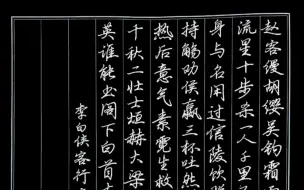 赵客缦胡缨吴钩霜
流星十步杀一人千里
身与名闲过信陵饮
持觞劝侯嬴三杯吐然
热后意气素霓生救
千秋二壮士烜赫大梁
英谁能书阁下白首
李白侠客行